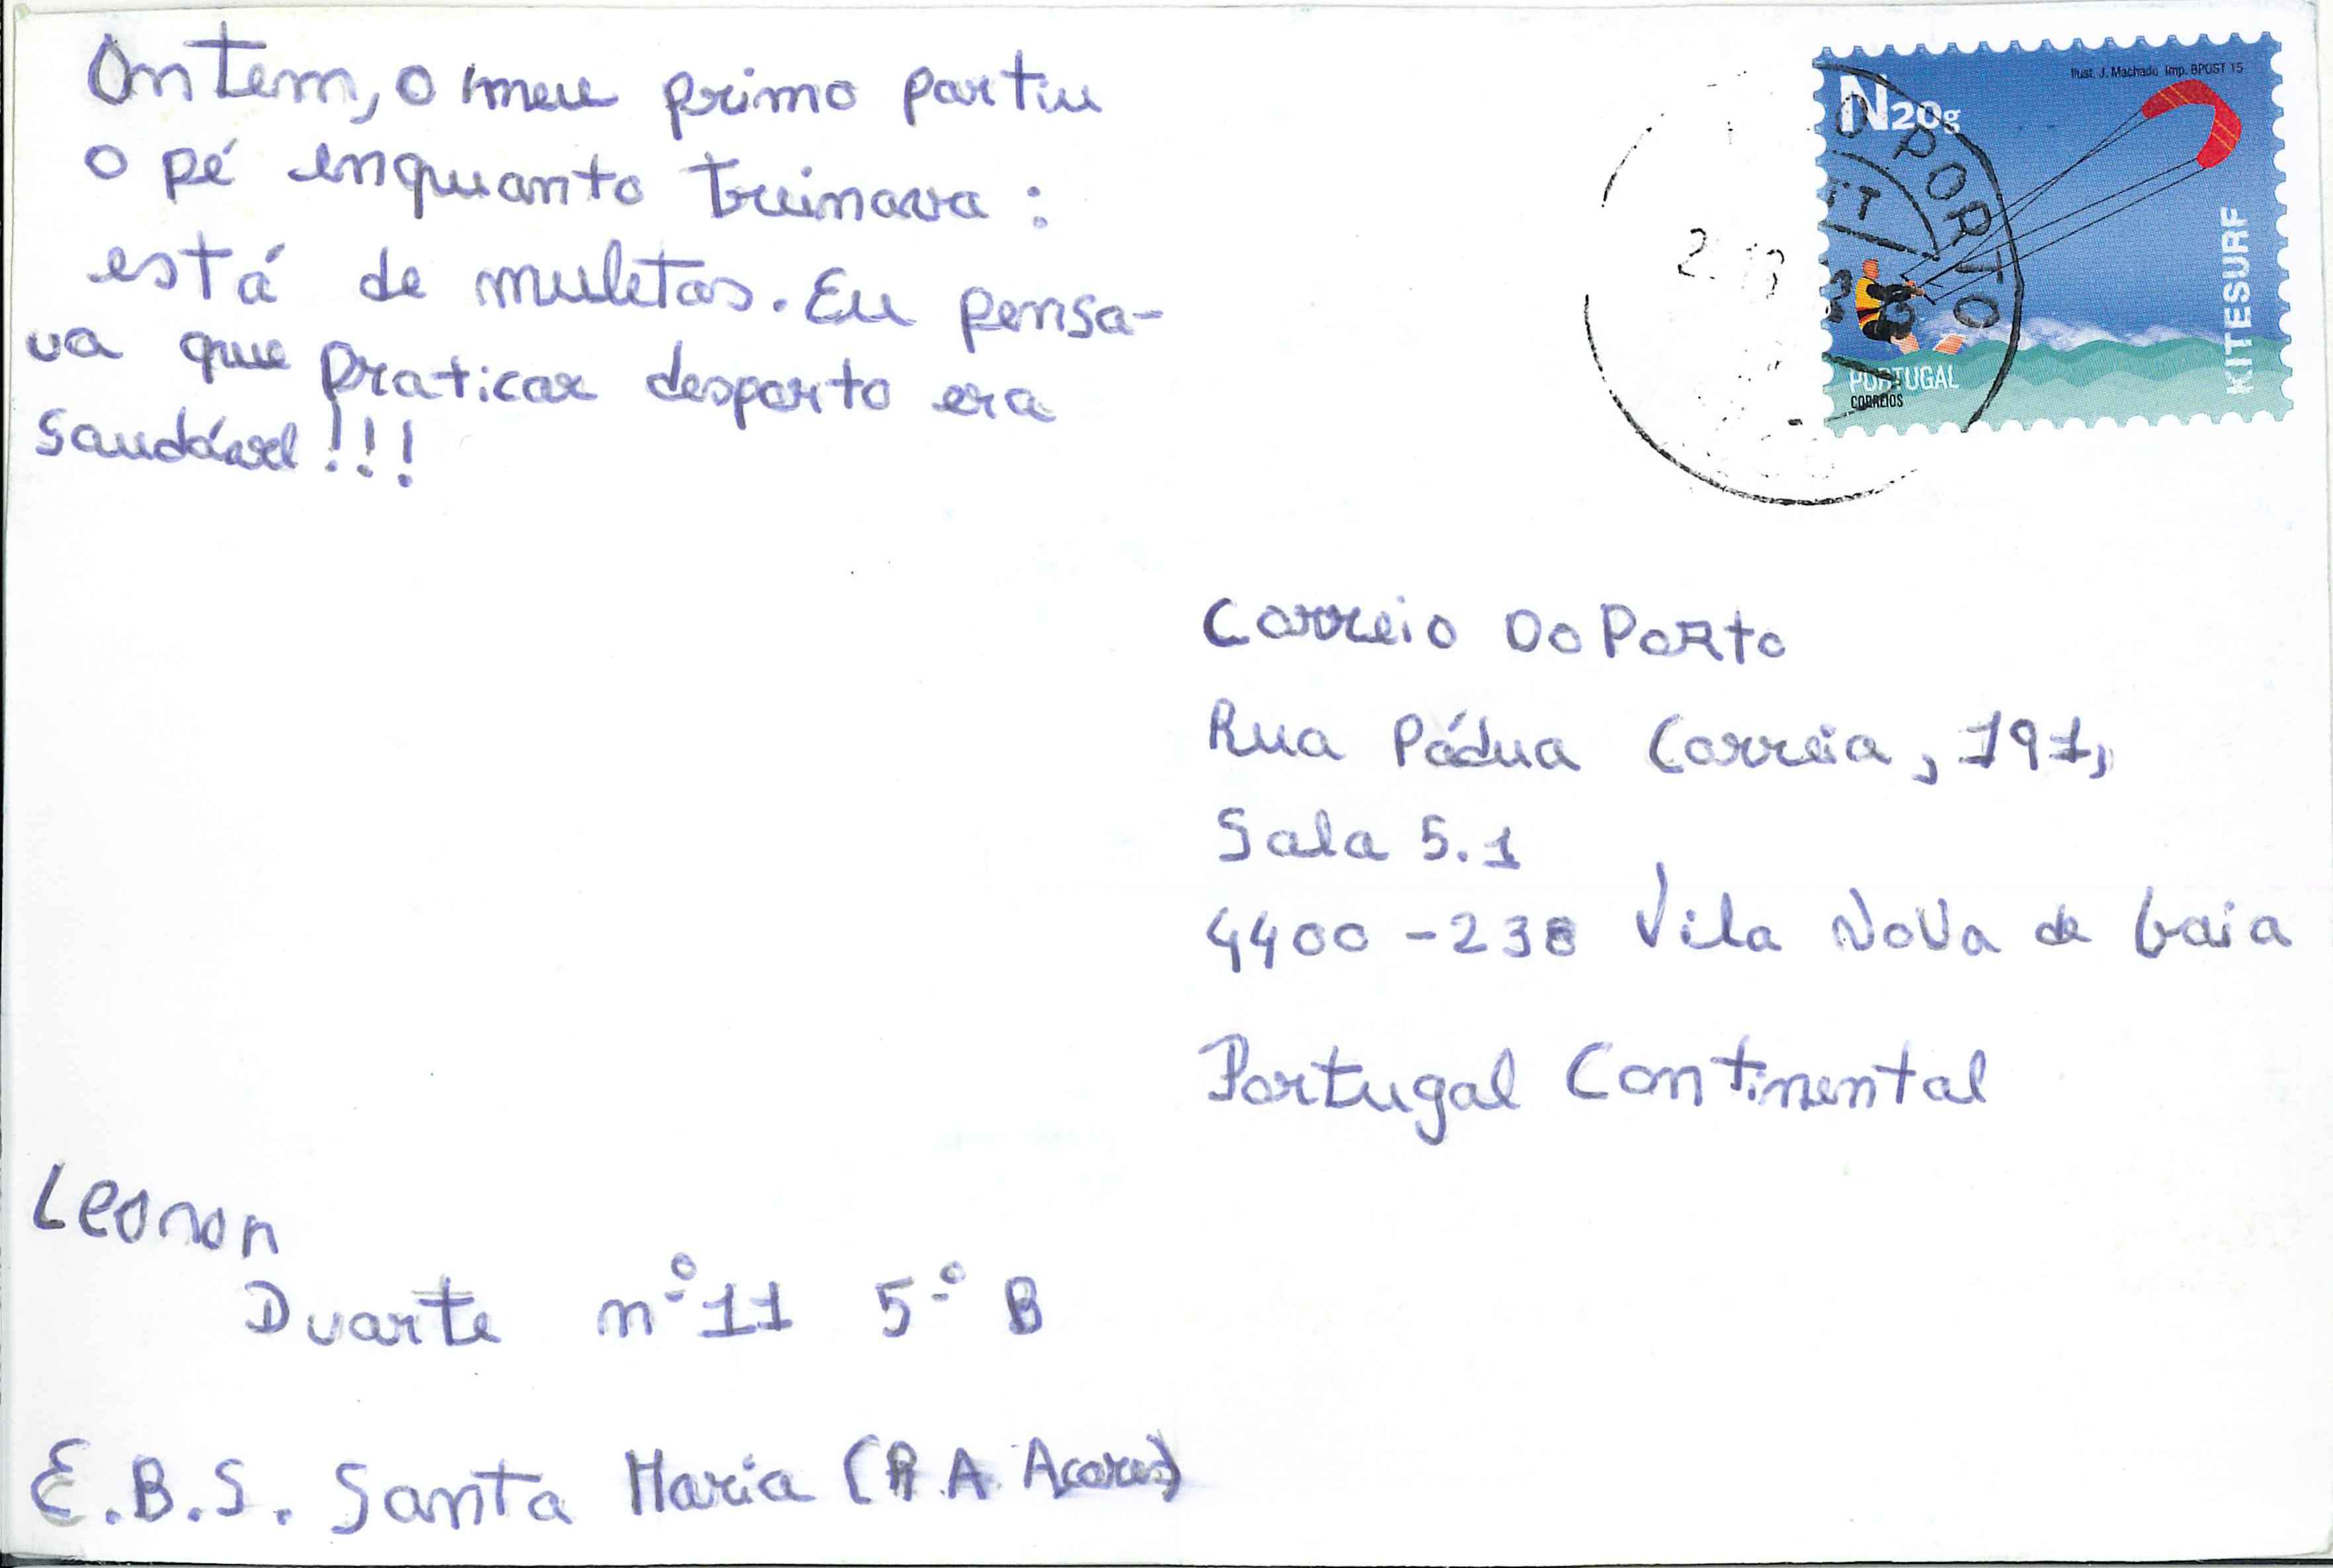 Ontem, o meu primo partiu
o pé enquanto treinava :
está de muletas. Eu pensa-
va que praticar desporto era
saudável!!!
Ilust. J. Machado Imp. BPOST 15
N20g
PORTO
KITESURF
PORTUGAL
CORREIOS
Correio Do Porto
Rua Pádua Correia, 191,
Sala 5.1
4400-238 Vila Nova de Gaia
Portugal Continental
Leonor
Duarte nº 11 5º B
E.B.S. Santa Maria (R.A. Açores)